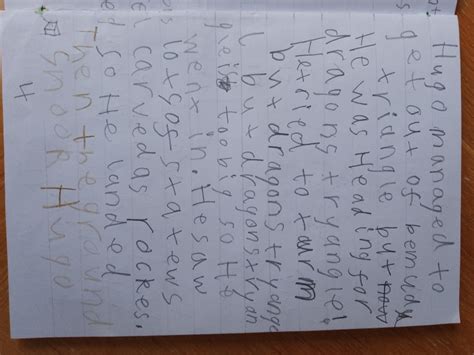 Hugo managed to
get out of bemudu
triangle but
He was Heading for
dragons tryangle!
He tried to turm
but dragons tryange
l but dragons tryan
toobig so He
went in. He saw
carved as rockes.
so He landed
Then the ground
snook Hugo
4